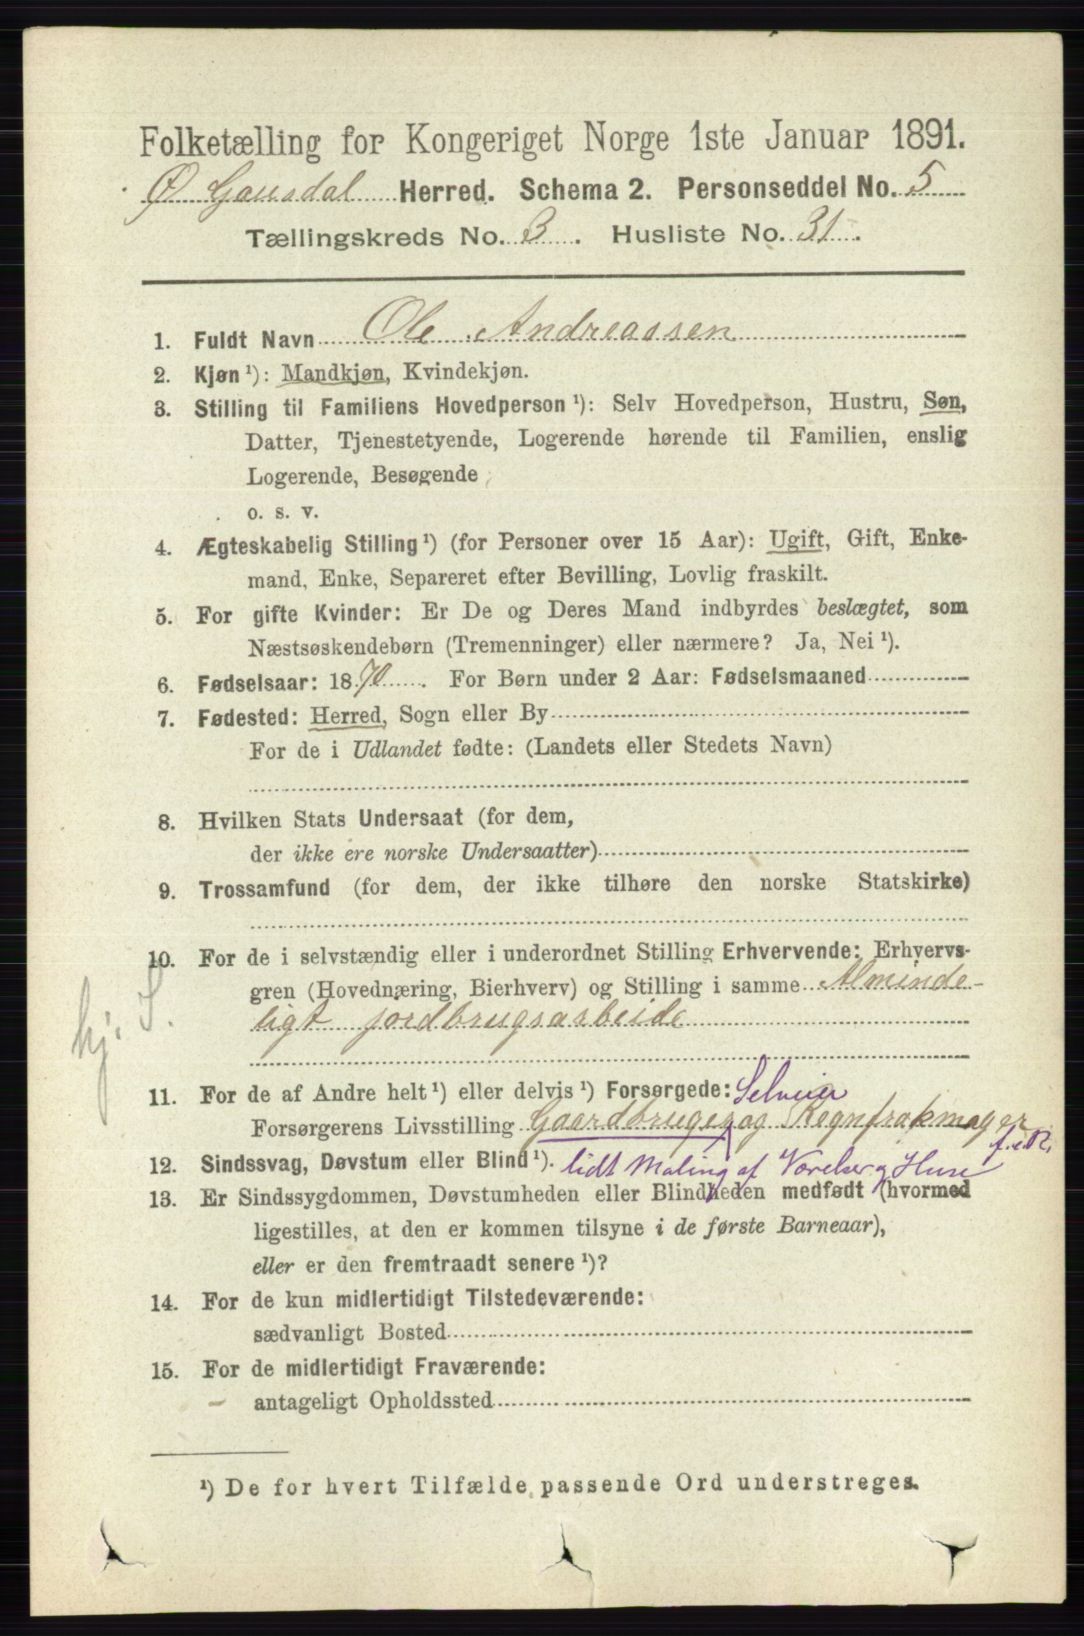 Folketælling for Kongeriget Norge 1ste Januar 1891.
Ø Gausdal Herred. Schema 2. Personseddel No. 5
Tællingskreds No. 3. Husliste No. 31.
1. Fuldt Navn Ole Andreassen
2. Kjøn ¹): Mandkjøn, Kvindekjøn.
3. Stilling til Familiens Hovedperson ¹): Selv Hovedperson, Hustru, Søn,
Datter, Tjenestetyende, Logerende hørende til Familien, enslig
Logerende, Besøgende
o. s. v.
4. Ægteskabelig Stilling ¹) (for Personer over 15 Aar): Ugift, Gift, Enke-
mand, Enke, Separeret efter Bevilling, Lovlig fraskilt.
5. For gifte Kvinder: Er De og Deres Mand indbyrdes beslægtet, som
Næstsøskendebørn (Tremenninger) eller nærmere? Ja, Nei ¹).
6. Fødselsaar: 1870. For Børn under 2 Aar: Fødselsmaaned
7. Fødested: Herred, Sogn eller By
For de i Udlandet fødte: (Landets eller Stedets Navn)
8. Hvilken Stats Undersaat (for dem,
der ikke ere norske Undersaatter)
9. Trossamfund (for dem, der ikke tilhøre den norske Statskirke)
10. For de i selvstændig eller i underordnet Stilling Erhvervende: Erhvervs-
gren (Hovednæring, Bierhverv) og Stilling i samme Alminde-
ligt jordbrugsarbeide
hj. S.
11. For de af Andre helt ¹) eller delvis ¹) Forsørgede: Selveier
Forsørgerens Livsstilling Gaardbruger og Regnfrakmager
f. e. R.
12. Sindssvag, Døvstum eller Blind ¹). lidt Maling af Værelser og Huse
13. Er Sindssygdommen, Døvstumheden eller Blindheden medfødt (hvormed
ligestilles, at den er kommen tilsyne i de første Barneaar),
eller er den fremtraadt senere ¹)?
14. For de kun midlertidigt Tilstedeværende:
sædvanligt Bosted
15. For de midlertidigt Fraværende:
antageligt Opholdssted
¹) De for hvert Tilfælde passende Ord understreges.